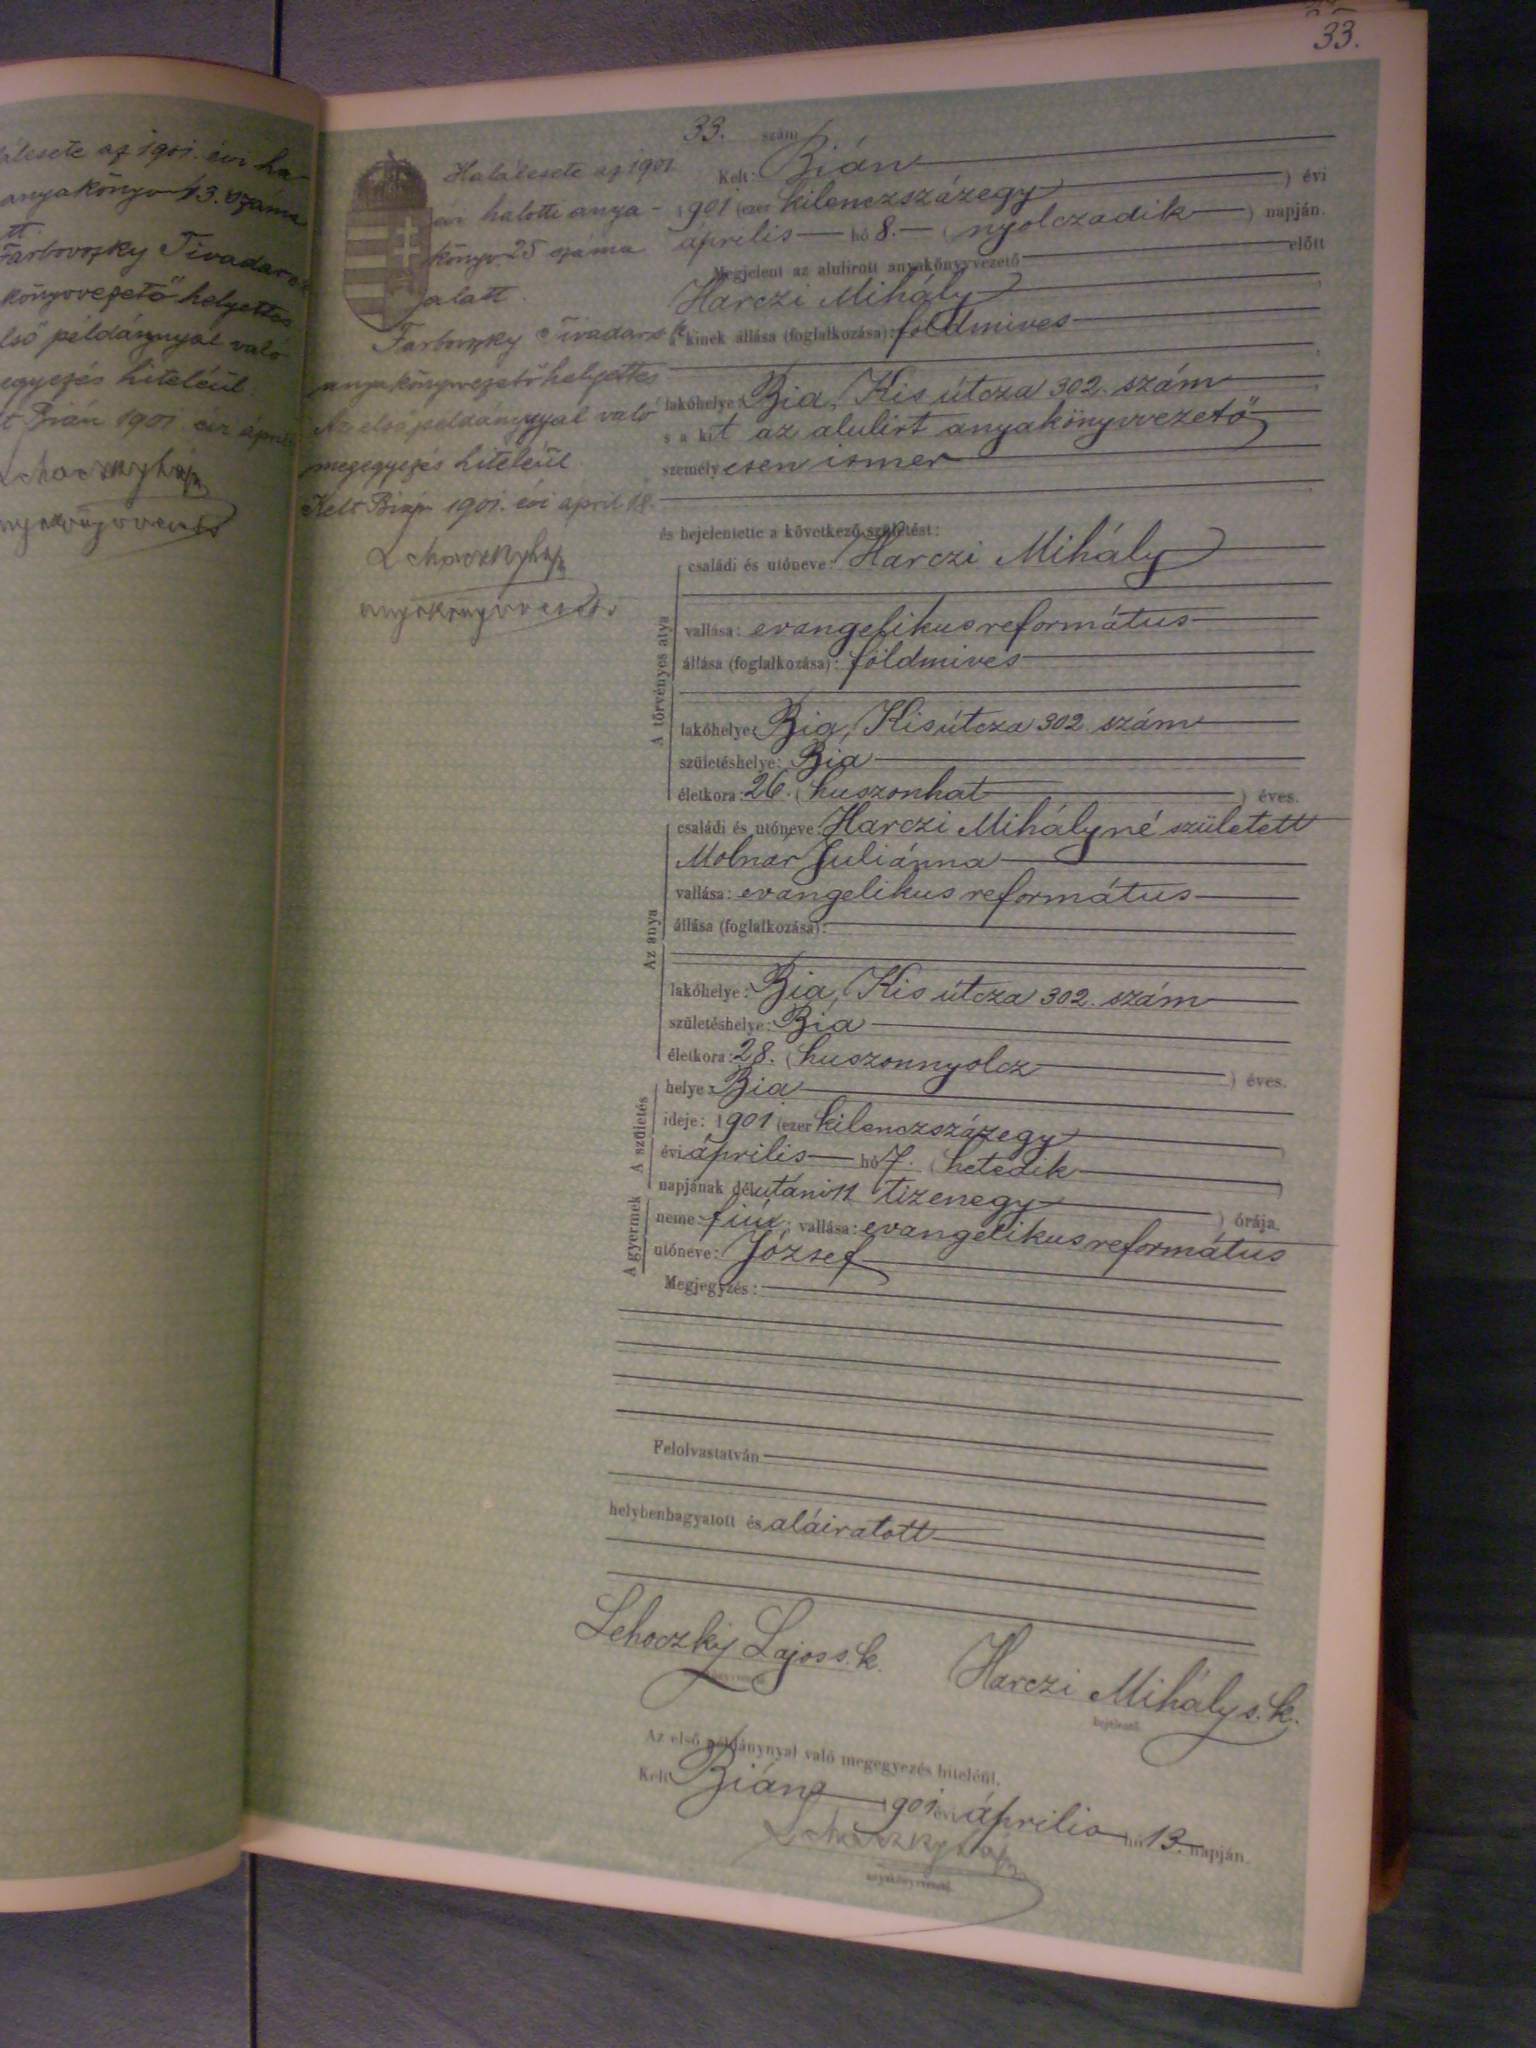 33.
33. szám
Kelt: Bián
1901 (ezer kilenczszázegy) évi
április hó 8. (nyolczadik) napján.
Megjelent az alulirott anyakönyvvezető előtt
Harczi Mihály
a kinek állása (foglalkozása): földmives
lakóhelye: Bia, Kis útcza 302. szám
s a kit az alulirt anyakönyvvezető
személyesen ismer
és bejelentette a következő születést:
A törvényes atya
családi és utóneve: Harczi Mihály
vallása: evangelikus református
állása (foglalkozása): földmives
lakóhelye: Bia, Kis útcza 302 szám
születéshelye: Bia
életkora: 26. (huszonhat) éves.
Az anya
családi és utóneve: Harczi Mihályné született
Molnár Juliánna
vallása: evangelikus református
állása (foglalkozása):
lakóhelye: Bia, Kis útcza 302. szám
születéshelye: Bia
életkora: 28. (huszonnyolcz) éves.
A születés
helye: Bia
ideje: 1901 (ezer kilenczszázegy)
évi április hó 7. (hetedik)
napjának délutáni 11 tizenegy) órája.
A gyermek
neme: fiú; vallása: evangelikus református
utóneve: József
Megjegyzés:
Felolvastatván
helybenhagyatott és aláiratott
Lehoczky Lajos s.k.
Harczi Mihály s.k.
bejelentő.
Az első példánynyal való megegyezés hiteléül.
Kelt Bián 1901 évi április hó 13. napján.
anyakönyvvezető.
Halálesete az 1901.
évi halotti anya-
könyv 25 száma
alatt.
Farbovszky Tivadar s.k.
anyakönyvvezető helyettes
Az első példánnyal való
megegyezés hiteléül
Kelt Bián 1901. évi ápril 18.
Lehoczky Lajos
anyakönyvvezető
álesete az 1901. évi ha-
anyakönyv 13. száma
tt.
Farbovszky Tivadar s.k.
könyvvezető helyettes
lső példánnyal való
egyezés hiteléül.
t Bián 1901. évi április
Lehoczky Lajos
nyakönyvvezető